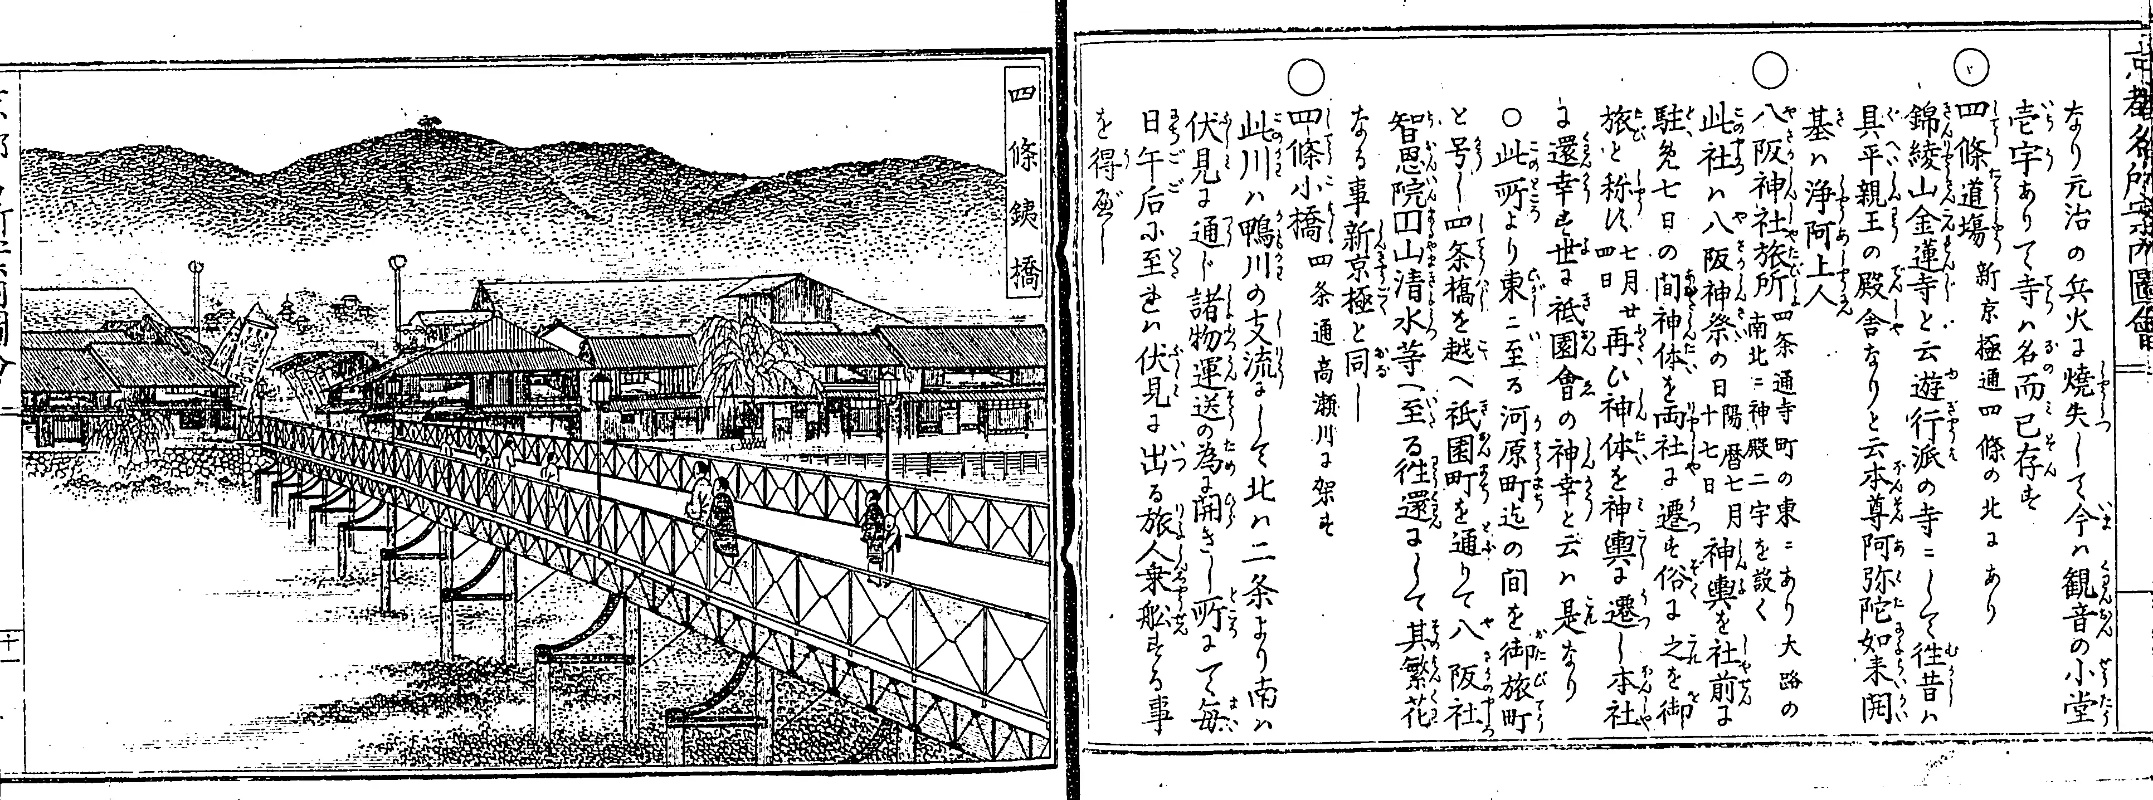 なり元治の兵火に焼失して今ハ観音の小堂
壱宇ありて寺ハ名而已存す
四條道場 新京極通四條の北にあり
錦綾山金蓮寺と云遊行派の寺ニして徃昔ハ
具平親王の殿舎なりと云本尊阿弥陀如来開
基ハ浄阿上人
八阪神社旅所 四条通寺町の東ニあり大路の
南北ニ神殿二宇を設く
此社ハ八阪神祭の日 陽暦七月
十七日 神輿を社前に
駐め七日の間神体を両社に遷す俗に之を御
旅と称ス 七月廿
四日 再ひ神体を神輿に遷し本社
に還幸す世に祗園會の神幸と云ハ是なり
○此所より東ニ至る河原町迄の間を御旅町
と号し四条橋を越へ祗園町を通りて八阪社
智恩院円山清水等へ至る徃還にして其繁花
なる事新京極と同し
四條小橋 四条通高瀬川に架す
此川ハ鴨川の支流にして北ハ二条より南ハ
伏見に通じ諸物運送の為に開きし所にて毎
日午后に至れハ伏見に出る旅人乗船する事
を得べし
四條銕橋
十一